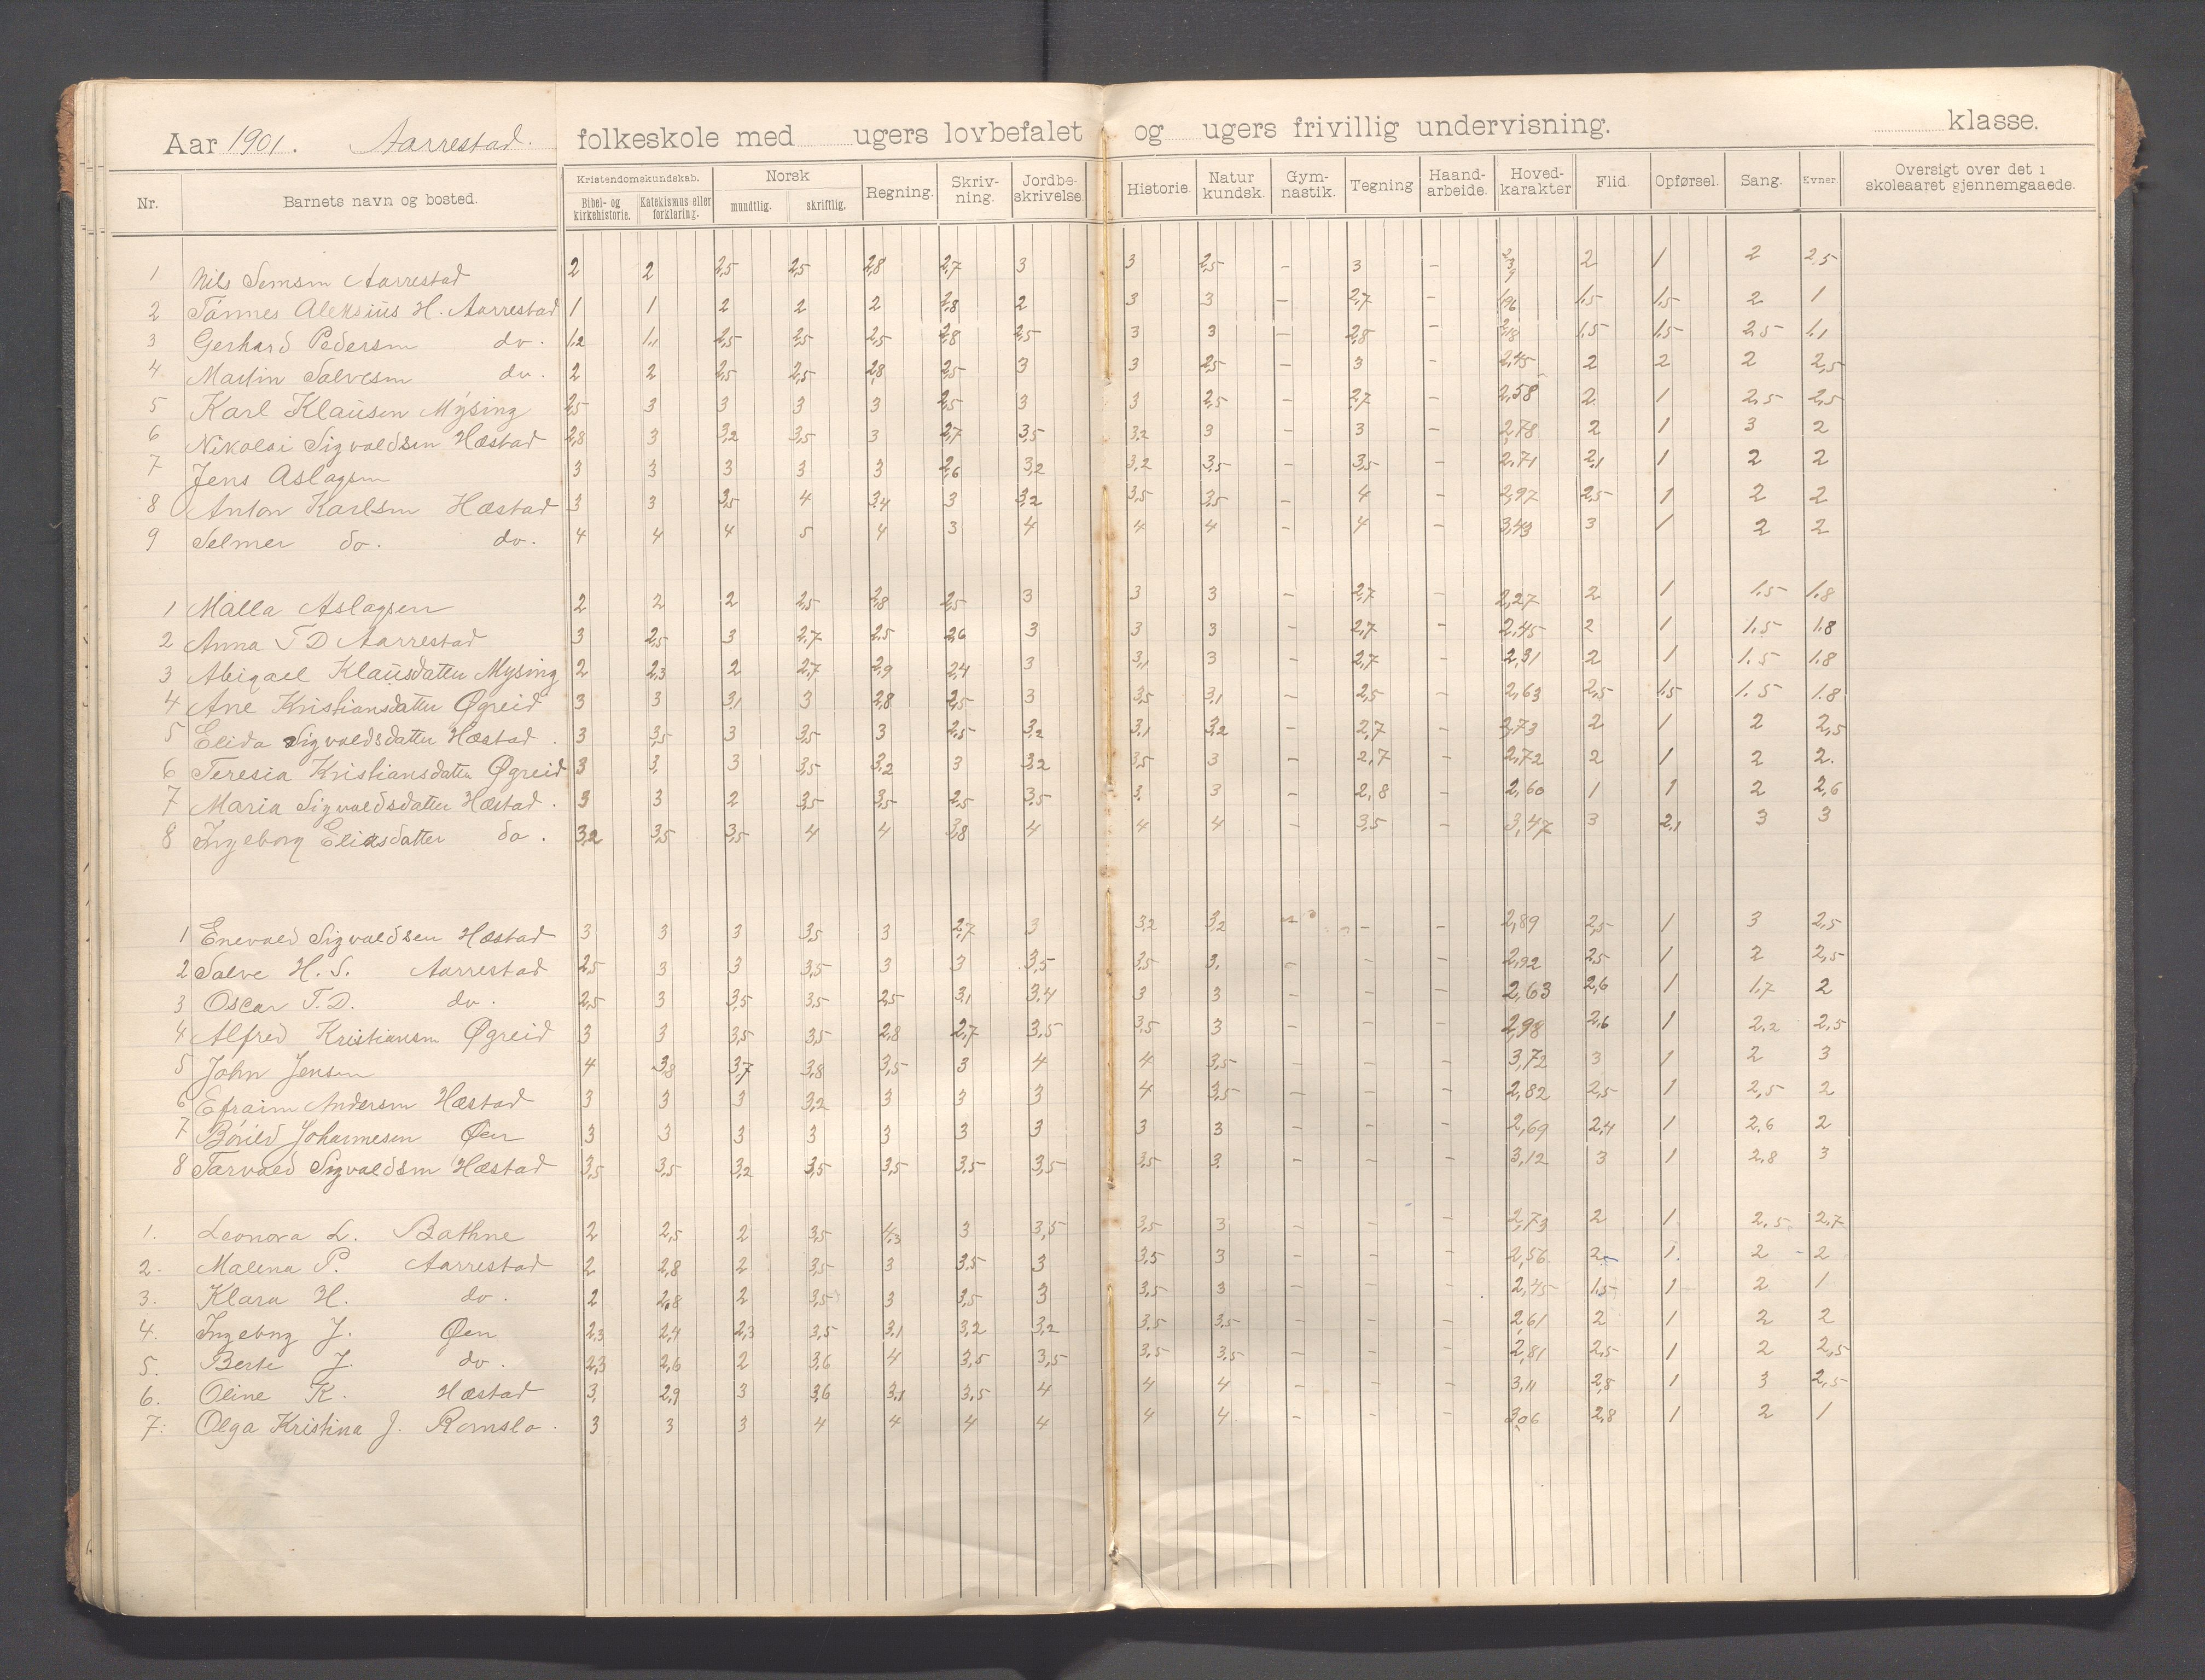 Aar 1901. Aarrestad. folkeskole med ugers lovbefalet og ugers frivillig undervisning. klasse.
Nr. Barnets navn og bosted. Kristendomskundskab. Bibel- og kirkehistorie. Katekismus eller forklaring. Norsk mundtlig. skriftlig. Regning. Skrivning. Jordbeskrivelse. Historie. Naturkundsk. Gymnastik. Tegning Haandarbeide. Hovedkarakter Flid. Opførsel. Sang. Evner. Oversigt over det i skoleaaret gjennemgaaede.
1 Nils Aarrestad 2 2 2,5 2,5 2,8 2,7 3 3 2,5 – 3 – 2 1 2 2,5
2 Tønnes Aleksius H. Aarrestad 1 1 2 2 2 2,8 2 3 3 – 2,7 – 1,96 1,5 1,5 2 1
3 Gerhard Pedersen do. 1,2 1,1 2,5 2,5 2,5 2,8 2,5 3 3 – 2,8 – 2,18 1,5 1,5 2,5 1,1
4 Martin Salvesen do. 2 2 2,5 2,5 2,8 2,5 3 3 2,5 – 3 – 2,45 2 2 2 2,5
5 Karl Klausen Mysing 2,5 3 3 3 3 2,5 3 3 2,5 – 2,7 – 2,58 2 1 2,5 2,5
6 Nikolai Sigvaldsen Hæstad 2,8 3 3,2 3,5 3 2,7 3,5 3,2 3 – 3 – 2,78 2 1 3 2
7 Jens Aslagsen 3 3 3 3 3 2,6 3,2 3,2 3,5 – 3,5 – 2,71 2,1 1 2 2
8 Anton Karlsen Hæstad 3 3 3,5 4 3,4 3 3,2 3,5 3,5 – 4 – 2,97 2,5 1 2 2
9 Selmer do. do. 4 4 4 5 4 3 4 4 4 – 4 – 3,43 3 1 2 2
1 Malla Aslagsen 2 2 2 2,5 2,8 2,5 3 3 3 – 2,7 – 2,27 2 1 1.5 1.8
2 Anna T D Aarrestad 3 2,5 3 2,7 2,5 2,6 3 3 3 – 2,7 – 2,45 2 1 1.5 1.8
3 Abigael Klausdatter Mysing 2 2,3 2 2,7 2,9 2,4 3 3,1 3 – 2,7 – 2,31 2 1 1.5 1.8
4 Ane Kristiansdatter Øgreid 3 3 3,1 3 2,8 2,5 3 3,5 3,1 – 2,5 – 2,63 2,5 1,5 1.5 1.8
5 Elida Sigvaldsdatter Hæstad. 3 3,5 3 3,5 3 2,5 3,2 3,1 3,2 – 2,7 – 2,73 2 1 2 2,5
6 Teresia Kristiansdatter Øgreid 3 3, 3 3,5 3,2 3 3,2 3,5 3 – 2,7 – 2,72 2 1 2 2.
7 Maria Sigvaldsdatter Hæstad. 3 3 2 3,5 3,5 2,5 3,5 3. 3 – 2,8 – 2,60 1 1 2 2,6
8 Ingeborg Eliasdatter do. 3,2 3,5 3,5 4 4 3,8 4 4 4 – 3,5 – 3,47 3 2,1 3 3
1 Enevald Sigvaldsen Hæstad 3 3 3 3,5 3 2,7 3 3,2 3,2 – – 2,89 2,5 1 3 2,5
2 Salve H. S. Aarrestad 2,5 3 3 3,5 3 3 3,5 3,5 3. – – – 2,92 2,5 1 2 2,5
3 Oscar T. D. do. 2,5 3 3,5 3,5 2,5 3,1 3,4 3 3 – – – 2,63 2,6 1 1,7 2
4 Alfred Kristiansen Øgreid 3 3 3,5 3,5 2,8 2,7 3,5 3,5 3 – – – 2,98 2,6 1 2,2 2,5
5 John Jensen 4 3,8 3,7 3,8 3,5 3 4 4 3,5 – – – 3,72 3 1 2 3
6 Efraim Andersen Hæstad 3 3 3 3,2 3 3 3 4 3,5 – – – 2,82 2,5 1 2,5 2
7 Johannesen Øen 3 3 3 3 3 3 3 3 3 – – – 2,69 2,4 1 2,6 2
8 Tarvald Sigvaldsen Hæstad 3,5 3,5 3,2 3,5 3,5 3,5 3,5 3,5 3. – – – 3,12 3 1 2,8 3
1. Leonora L. Bathne 2 2,5 2 3,5 4,3 3 3,5 3,5 3 – – – 2,73 2 1 2,5 2,7
2. Malena P. Aarrestad 2 2,8 2 3,5 3 3,5 3 3,5 3 – – – 2,56 2 1. 2 – 2
3. Klara H. do. 2 2,8 2 3,5 3 3,5 3 3,5 3 – – – 2,45 1,5 1 2 1
4. Ingeborg J. Øen 2,3 2,4 2,3 3,5 3,1 3,2 3,2 3,5 3,5 – – – 2,61 2 1 2 2
5. Berte J. do. 2,3 2,6 2 3,6 4 3,5 3,5 3,5 3,5 – – – 2,81 2,5 1 2 2,5
6. Oline K. Hæstad 3, 2,9 3 3,6 3,1 3,5 4 4 4 – – – 3,11 2,8 1 3 2,5
7. Olga Kristina J. Romslo. 3 3 3 4 4 4 4 4 4 – – – 3,06 2,8 1 2 1